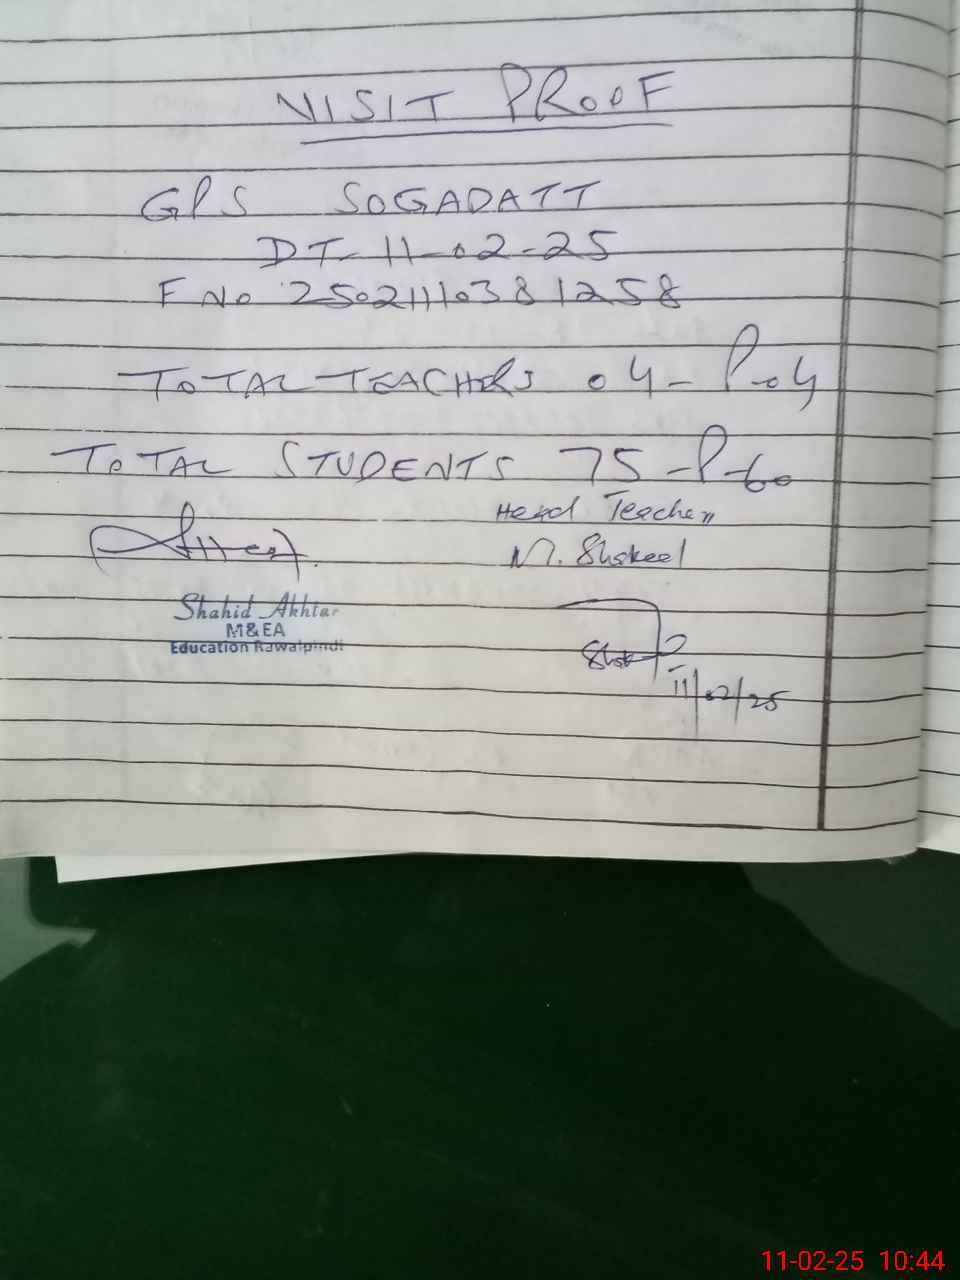 VISIT PROOF
GPS SOGADATT
DT- 11-02-25
F No 25021110381258
TOTAL TEACHERS 04 - P-04
TOTAL STUDENTS 75 - P-60
Head Teacher
M. Shakeel
Shahid Akhtar
M&EA
Education Rawalpindi
11/02/25
11-02-25 10:44